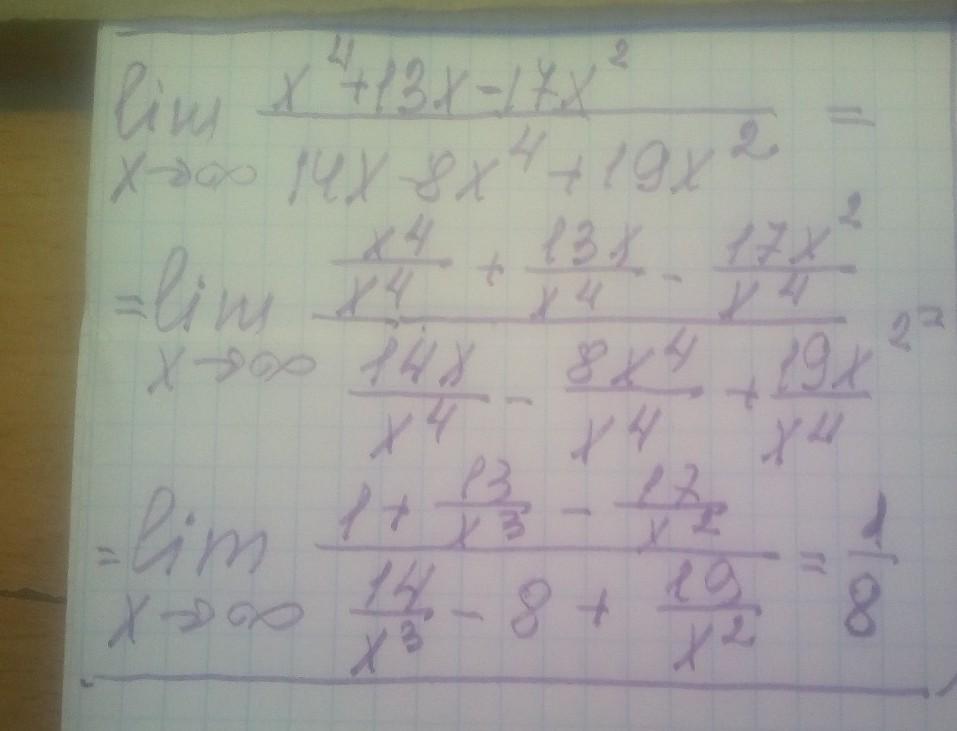 lim x→∞ (x⁴+13x-17x²)/(14x-8x⁴+19x²) =
=lim x→∞ (x⁴/x⁴ + 13x/x⁴ - 17x²/x⁴)/(14x/x⁴ - 8x⁴/x⁴ + 19x²/x⁴) =
=lim x→∞ (1+13/x³ - 17/x²)/(14/x³ - 8 + 19/x²) = 1/8